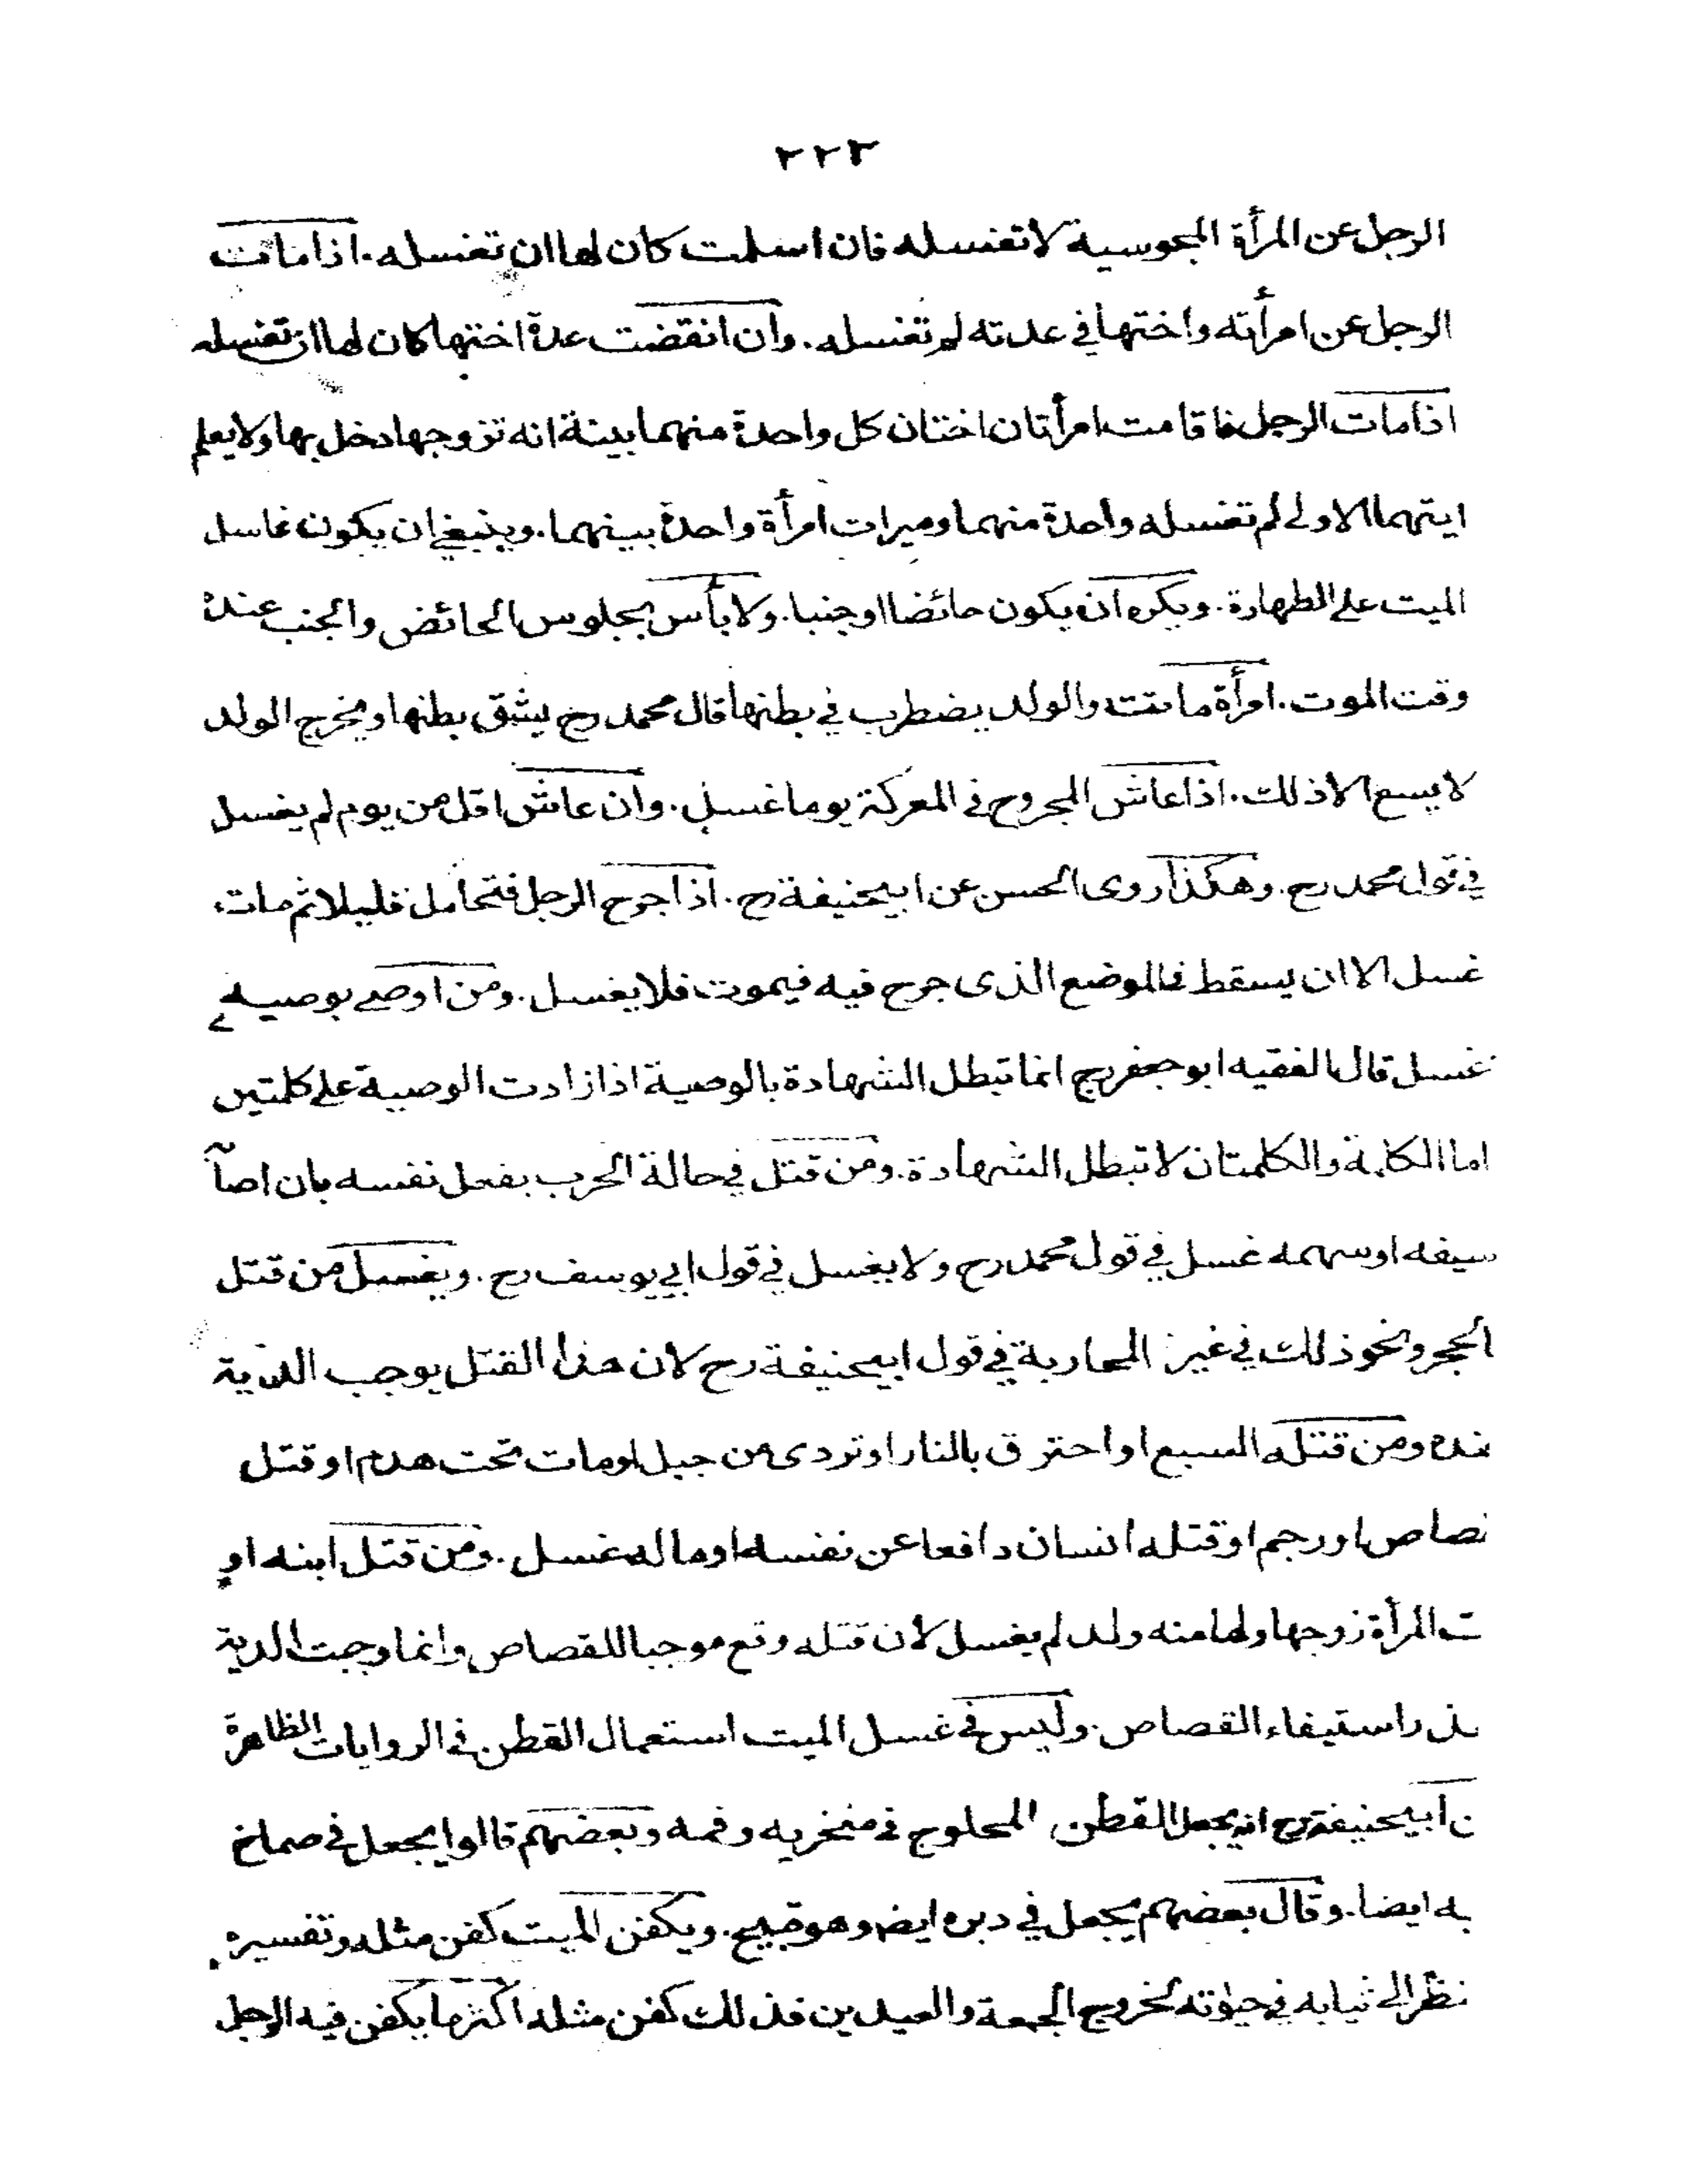 ٢٢٣
الرجل عن المرأة المجوسية لا تغسله فان اسلمت كان لها ان تغسله. اذا مات
الرجل عن امرأته واختها في عدته لم تغسله. وان انقضت عدة اختها كان لها ان تغسله
اذا مات الرجل فاقامت امرأتان اختان كل واحدة منهما بينة انه تزوجها دخل بها ولا يعلم
ايتهما الاولى لم تغسله واحدة منهما وميراث امرأة واحدة بينهما. وينبغي ان يكون غاسل
الميت على الطهارة. ويكره ان يكون حائضا او جنبا. ولا بأس بجلوس الحائض والجنب عنده
وقت الموت. امرأة ماتت والولد يضطرب في بطنها قال محمد رح يشق بطنها ويخرج الولد
لا يسع الا ذلك. اذا عاش المجروح في المعركة يوما غسل. وان عاش اقل من يوم لم يغسل
في قول محمد رح. وهكذا روى الحسن عن ابيحنيفة رح. اذا جرح الرجل فتحامل قليلا ثم مات
غسل الا ان يسقط في الموضع الذي جرح فيه فيموت فلا يغسل. ومن اوصى بوصية
غسل قال الفقيه ابو جعفر رح انما تبطل الشهادة بالوصية اذا زادت الوصية على كلمتين
اما الكلمة والكلمتان لا تبطل الشهادة. ومن قتل في حالة الحرب بفعل نفسه بان اصا
سيفه او سهمه غسل في قول محمد رح ولا يغسل في قول ابي يوسف رح. ويغسل من قتل
الحجر ونحو ذلك في غير المحاربة في قول ابيحنيفة رح لان هذا القتل يوجب الدية
نده ومن قتله السبع او احترق بالنار او تردى من جبل او مات تحت هدم او قتل
صاص او رجم او قتله انسان دافعا عن نفسه او ماله غسل. ومن قتل ابنه او
ت المرأة زوجها ولها منه ولد لم يغسل لان قتله وقع موجبا للقصاص وانما وجبت الدية
ذر استيفاء القصاص. وليس في غسل الميت استعمال القطن في الروايات الظاهرة
ن ابيحنيفة رح انه يجعل القطن المحلوج في منخريه وفمه وبعضهم قالوا يجعل في صماخ
يه ايضا. وقال بعضهم يجعل في دبره ايضا وهو قبيح. ويكفن الميت كفن مثله وتفسيره
نظر الى ثيابه في حيوته لخروج الجمعة والعيدين فذلك كفن مثله اكثر ما يكفن فيه الرجل